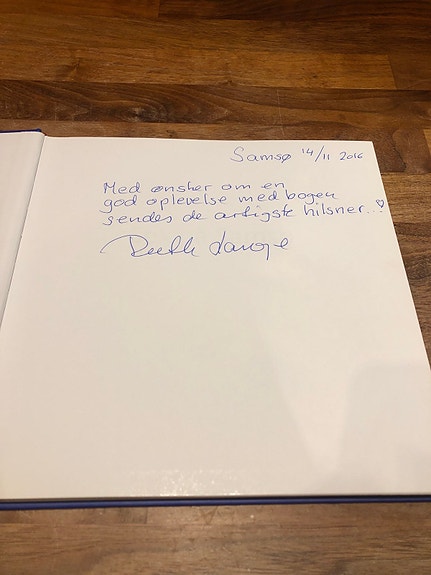 Samsø 14/11 2016
Med ønsker om en
god oplevelse med bogen
sendes de artigste hilsner...!
Ruth Lange